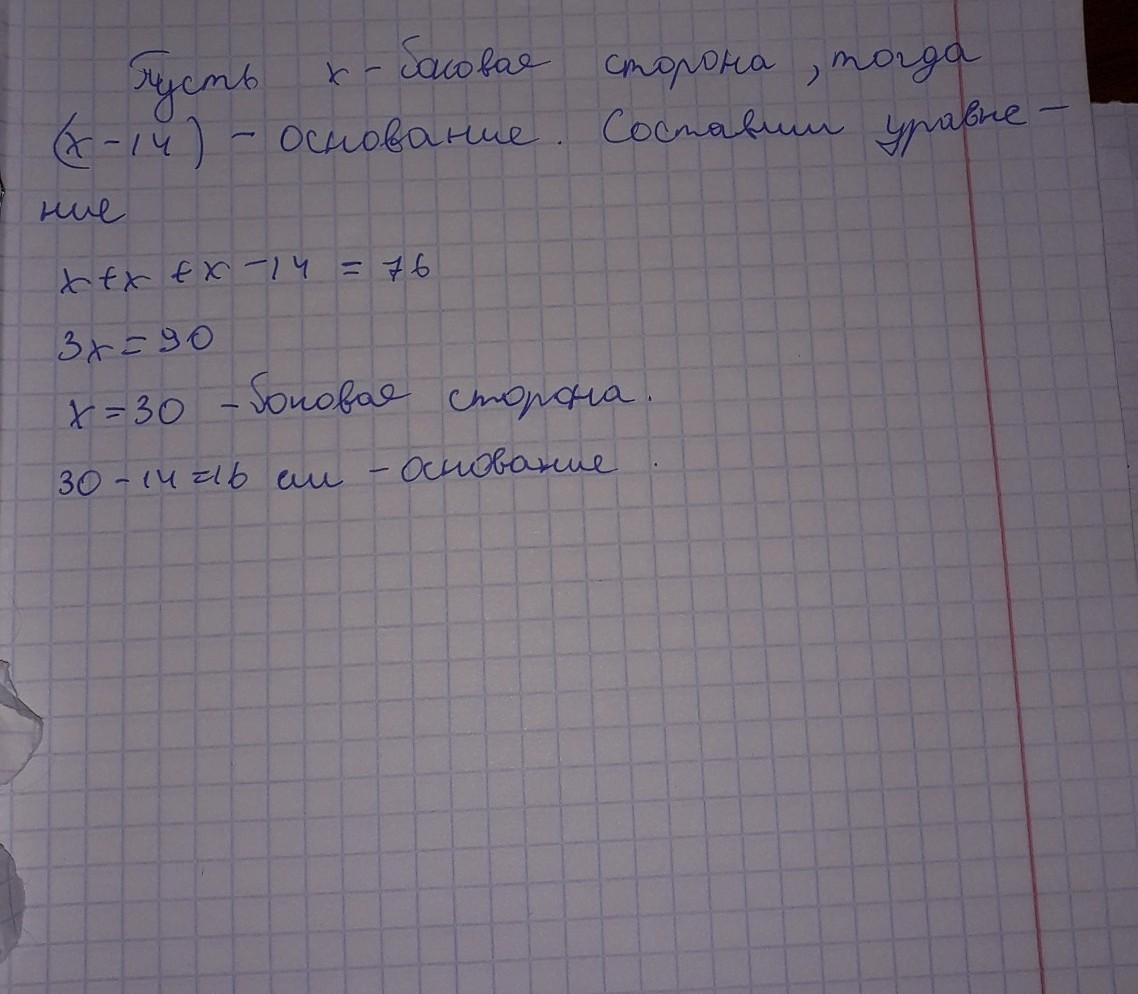 Пусть x - боковая сторона, тогда
(x - 14) - основание. Составим уравне-
ние
x + x + x - 14 = 76
3x = 90
x = 30 - боковая сторона.
30 - 14 = 16 см - основание.